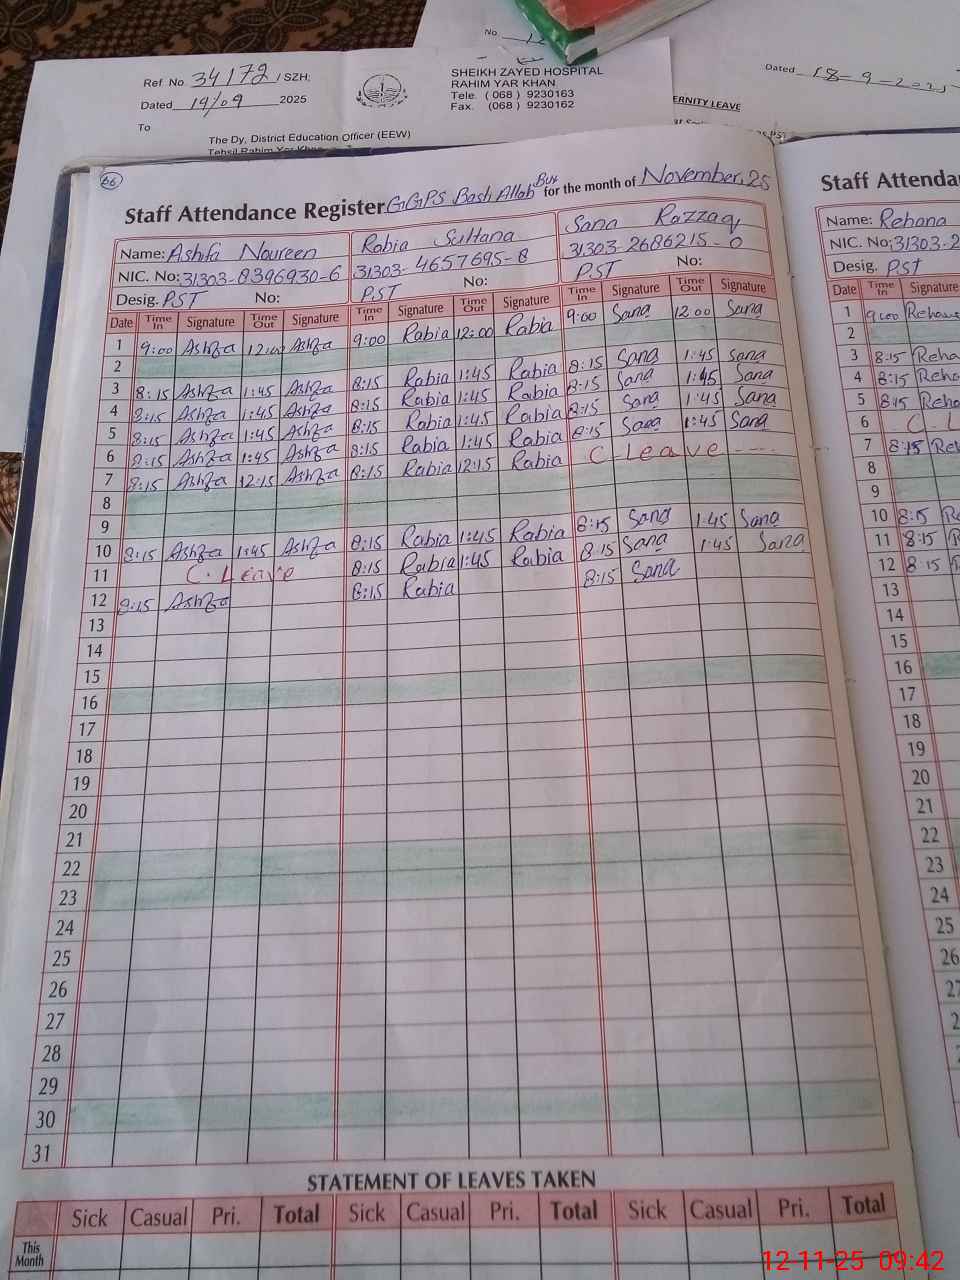 No. 12
Ref No. 34172 / SZH;
Dated 19/09 2025
SHEIKH ZAYED HOSPITAL
RAHIM YAR KHAN
Tele. (068) 9230163
Fax. (068) 9230162
Dated 18-9-2025
ERNITY LEAVE
To
The Dy, District Education Officer (EEW)
Tehsil Rahim Yar Khan
66
Staff Attendance Register GGPS Bash Allah Bux for the month of November, 25
Name: Ashfa Noureen Rabia Sultana Sana Razzaq
NIC. No: 31303-8396930-6 31303-4657695-8 31303-2686215-0
Desig. PST No: PST No: PST No:
Date Time In Signature Time Out Signature Time In Signature Time Out Signature Time In Signature Time Out Signature
1 9:00 Ashfa 12:00 Ashfa 9:00 Rabia 12:00 Rabia 9:00 Sana 12:00 Sana
2
3 8:15 Ashfa 1:45 Ashfa 8:15 Rabia 1:45 Rabia 8:15 Sana 1:45 Sana
4 8:15 Ashfa 1:45 Ashfa 8:15 Rabia 1:45 Rabia 8:15 Sana 1:45 Sana
5 8:15 Ashfa 1:45 Ashfa 8:15 Rabia 1:45 Rabia 8:15 Sana 1:45 Sana
6 8:15 Ashfa 1:45 Ashfa 8:15 Rabia 1:45 Rabia 8:15 Sana 1:45 Sana
7 8:15 Ashfa 12:15 Ashfa 8:15 Rabia 12:15 Rabia C Leave ----
8
9
10 8:15 Ashfa 1:45 Ashfa 8:15 Rabia 1:45 Rabia 8:15 Sana 1:45 Sana
11 C. Leave 8:15 Rabia 1:45 Rabia 8:15 Sana 1:45 Sana
12 8:15 Ashfa 8:15 Rabia 8:15 Sana
13
14
15
16
17
18
19
20
21
22
23
24
25
26
27
28
29
30
31
STATEMENT OF LEAVES TAKEN
Sick Casual Pri. Total Sick Casual Pri. Total Sick Casual Pri. Total
This Month
Staff Attenda
Name: Rehana
NIC. No: 31303-2
Desig. PST
Date Time In Signature
1 9:00 Rehana
2
3 8:15 Reha
4 8:15 Reha
5 8:15 Reha
6 C. L
7 8:15 Reh
8
9
10 8:15 R
11 8:15 R
12 8:15
13
14
15
16
17
18
19
20
21
22
23
24
25
26
12-11-25 09:42